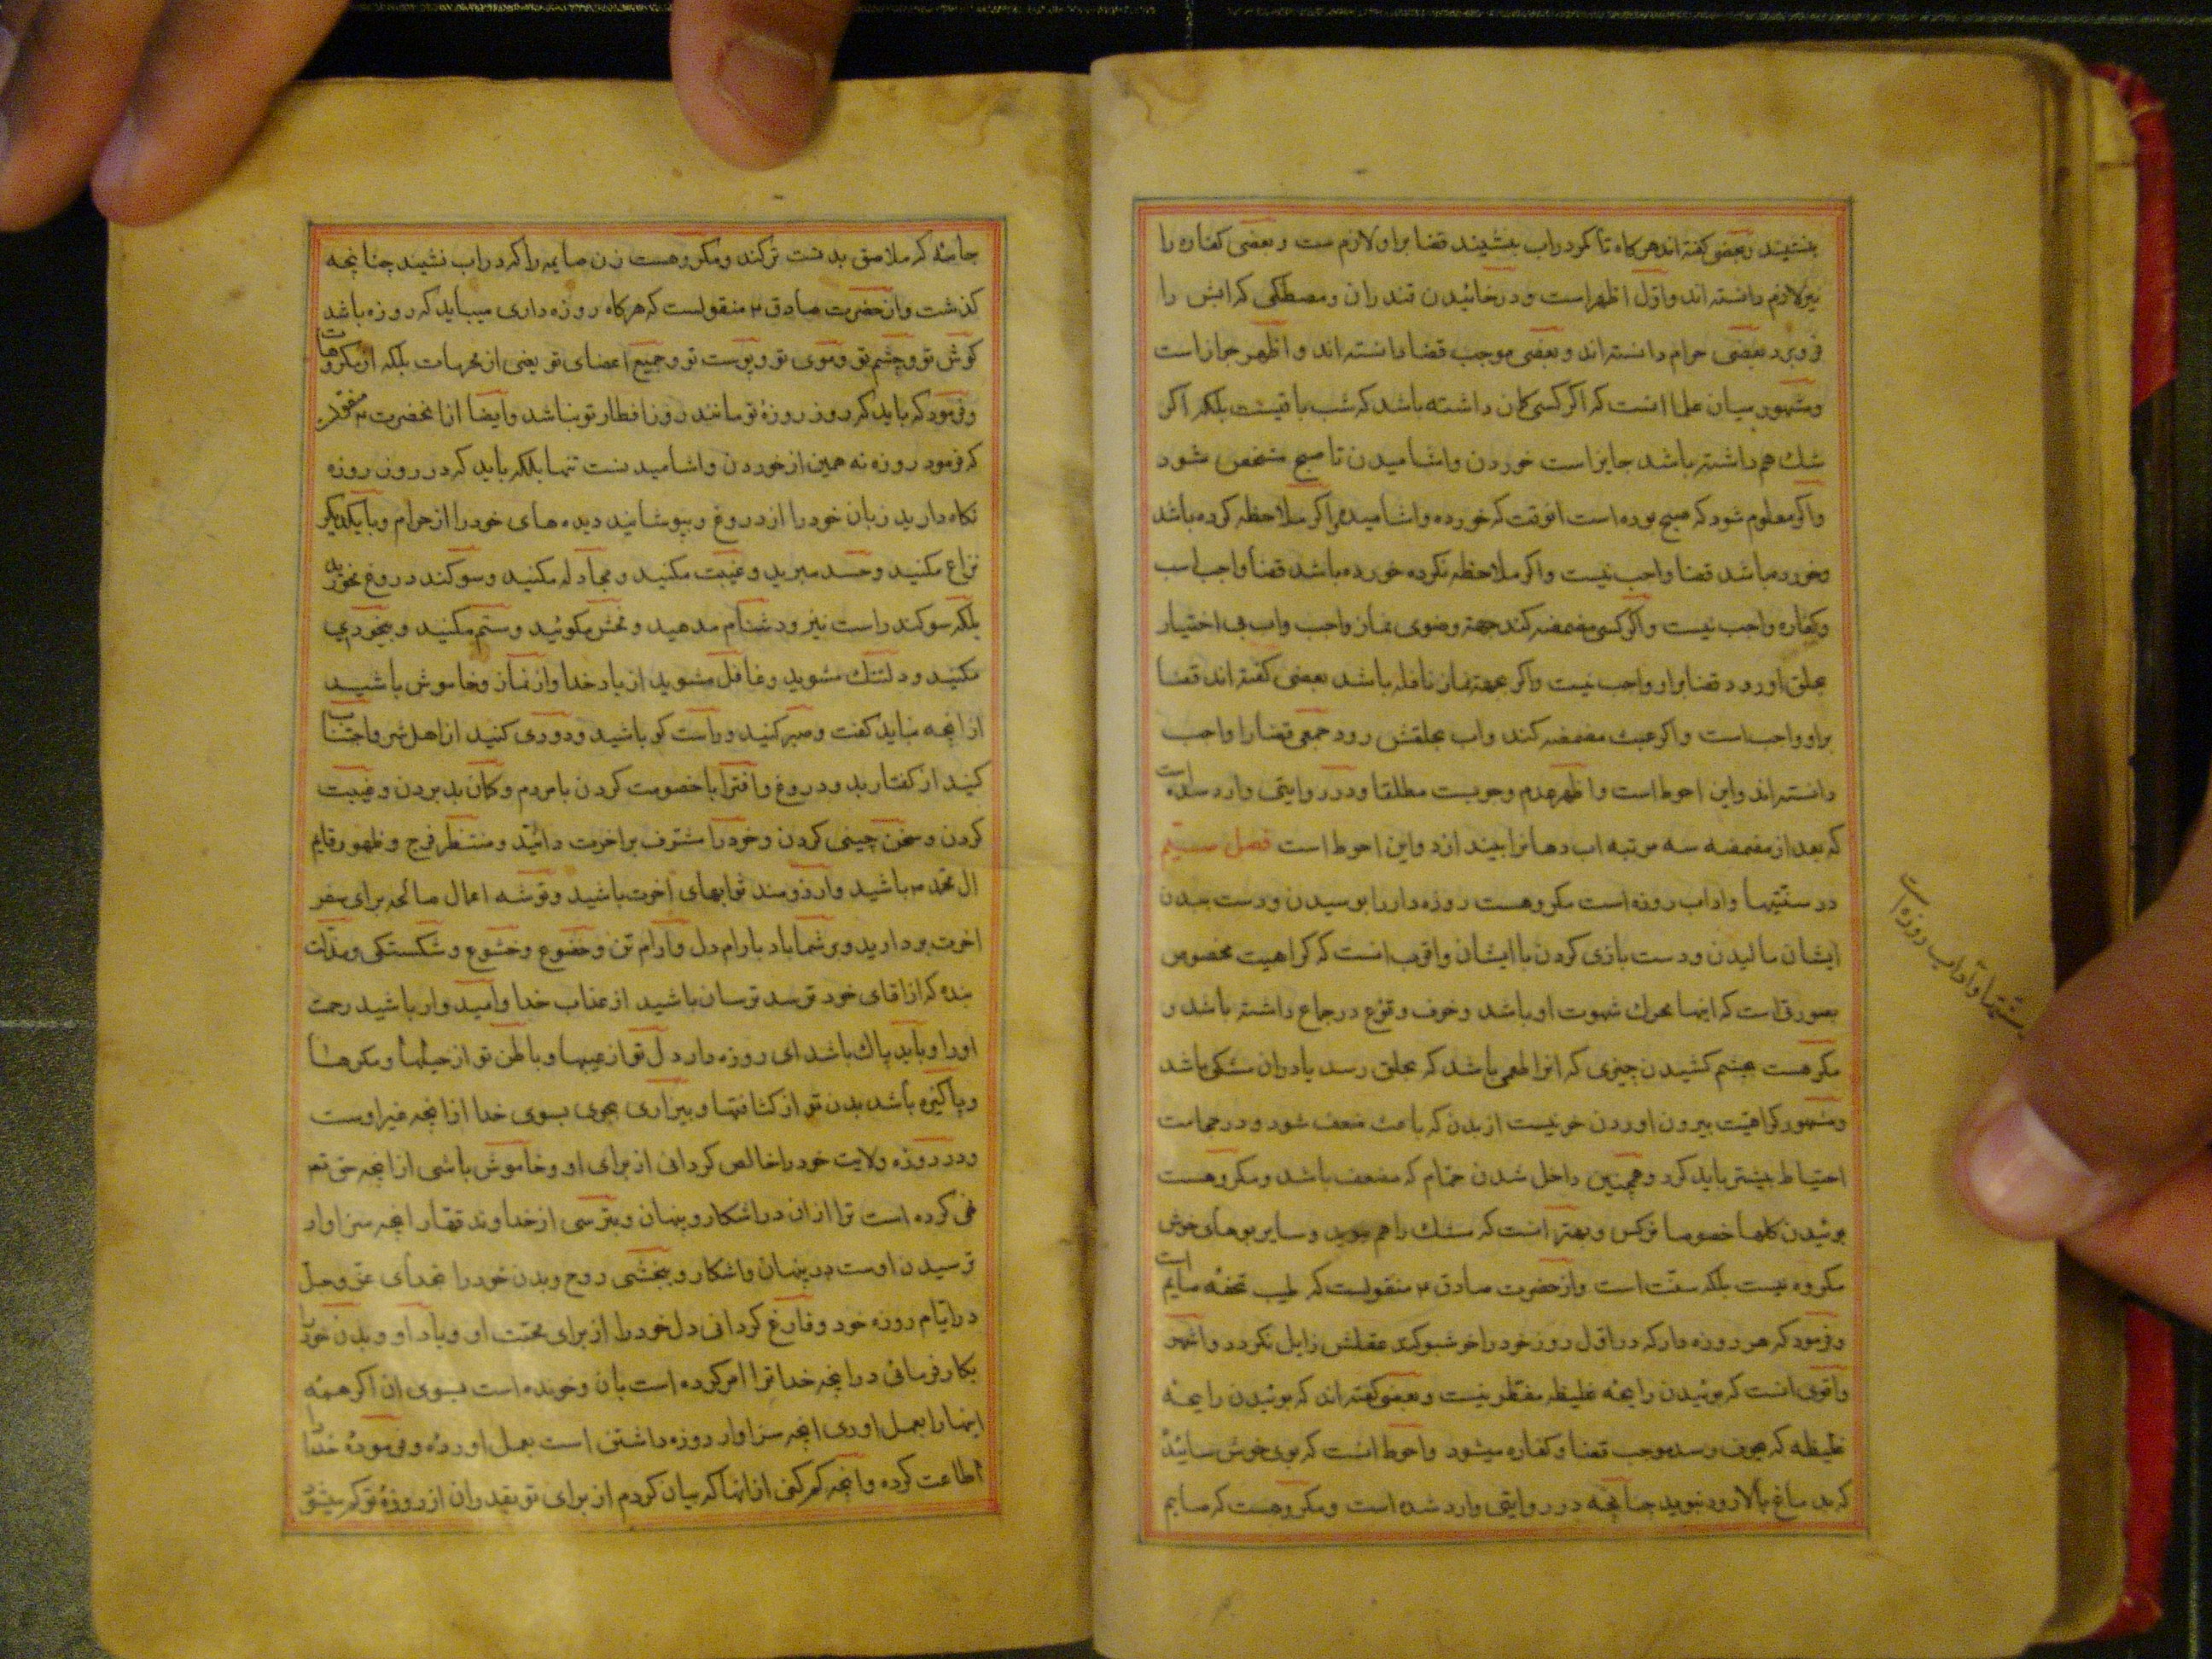 بنشیند و بعضی گفته اند هرکاه تا کمر در اب بنشیند قضا براو لازم ست و بعضی کفاره را
نیز لازم دانسته اند و اول اظهر است و در خائیدن قندران و مصطکی که ابش را
فرو برد بعضی حرام دانسته اند و بعضی موجب قضا دانسته اند و اظهر جواز است
و مشهور میان علما انست که اکر کسی کمان داشته باشد که شب باقیست بلکه اکر
شك هم داشته باشد جایز است خوردن و اشامیدن تا صبح مشخص شود
و اکر معلوم شود که صبح بوده است انوقت که خورده و اشامیده اکر ملاحظه کرده باشد
و خورده باشد قضا واجب نیست و اکر ملاحظه نکرده خورده باشد قضا واجب است
و کفاره واجب نیست و اکر کسی مضمضه کند جهته وضوی نماز واجب و اب بی اختیار
بحلق او رود قضا براو واجب نیست و اکر جهته نماز نافله باشد بعضی کفته اند قضا
براو واجب است و اکر عبث مضمضه کند و اب بحلقش رود جمعی قضا را واجب
دانسته اند و این احوط است و اظهر عدم وجوبست مطلقا و در روایتی وارد شده است
که بعد از مضمضه سه مرتبه اب دهانرا بیندازد و این احوط است فصل
در سنتیها و اداب روزه است مکروهست روزه دار را بوسیدن و دست ببدن
ایشان مالیدن و دست بازی کردن با ایشان و اقرب انست که کراهیت مخصوص
بصورتی است که اینها محرك شهوت او باشد و خوف وقوع در جماع داشته باشد و
مکروهست بچشم کشیدن چیزی که انرا طعمی باشد که بحلق رسد یا دران مشکی باشد
و مشهور کراهیت بیرون اوردن خونیست از بدن که باعث ضعف شود و در حجامت
احتیاط بیشتر باید کرد و همچنین داخل شدن حمام که مضعف باشد و مکروهست
بوئیدن کلها خصوصا نرکس و بهتر انست که مشك را هم نبوید و سایر بوهای خوش
مکروه نیست بلکه سنت است و از حضرت صادق ع منقولست که طیب تحفه صایم است
و فرمود که هر روزه دار که در اول روز خود را خوشبو کند عقلش زایل نکردد و اشهر
و اقوی انست که بوئیدن رایحه غلیظه مفطر نیست و بعضی کفته اند که بوئیدن رایحه
غلیظه که بجوف رسد موجب قضا و کفاره میشود و احوط انست که بوی خوش سائیده
که بدماغ بالا رود نبوید چنانچه در روایتی وارد شده است و مکروهست که صایم
سنتیها و آداب روزه است
جامه که ملاصق بدنست تر کند و مکروهست زن صایمه را که در اب نشیند چنانچه
کذشت و از حضرت صادق ع منقولست که هرکاه روزه داری میباید که روزه باشد
کوش تو و چشم تو و موی تو و پوست تو و جمیع اعضای تو یعنی از محرمات بلکه از مکروهات
و فرمود که باید که روز روزهٔ تو مانند روز افطار تو نباشد و ایضا از انحضرت ع منقولست
که فرمود روزه نه همین از خوردن و اشامیدنست تنها بلکه باید که در روز روزه
نکاه دارید زبان خود را از دروغ و بپوشانید دیده های خود را از حرام و با یکدیکر
نزاع مکنید و حسد مبرید و غیبت مکنید و مجادله مکنید و سوکند دروغ مخورید
بلکه سوکند راست نیز و دشنام مدهید و فحش مکوئید و ستم مکنید و بیخردی
مکنید و دلتنك مشوید و غافل مشوید از یاد خدا و از نماز و خاموش باشید
از انچه نباید کفت و صبر کنید و راست کو باشید و دوری کنید از اهل شر و اجتناب
کنید از کفتار بد و دروغ و افترا با خصومت کردن با مردم و کمان بد بردن و غیبت
کردن و سخن چینی کردن و خود را مشرف براخرت دانید و منتظر فرج و ظهور قایم
ال محمد ع باشید و ارزومند ثوابهای اخرت باشید و توشه اعمال صالحه برای سفر
اخرت بردارید و بر شما باد بارام دل و ارام تن و خضوع و خشوع و شکستکی و مذلت
بنده که از اقای خود ترسد ترسان باشید از عذاب خدا و امیدوار باشید رحمت
اورا و باید پاك باشد ای روزه دار دل تو از عیبها و باطن تو از حیلها و مکرها
و پاکیزه باشد بدن تو از کثافتها و بیزاری بجوی بسوی خدا از انچه غیر اوست
و در روزه ولایت خود را خالص کردانی از برای او و خاموش باشی از انچه حق تع
نهی کرده است ترا از ان در اشکار و پنهان و بترسی از خداوند قهار انچه سزاوار
ترسیدن اوست در پنهان و اشکار و ببخشی روح و بدن خود را بخدای عز و جل
در ایام روزه خود و فارغ کردانی دل خود را از برای محبت او و یاد او و بدن خود را
بکار فرمائی در انچه خدا ترا امر کرده است بان و خوانده است بسوی ان اکر همه
اینها را بعمل اوری انچه سزاوار روزه داشتن است بعمل اورده و فرمودهٔ خدا را
اطاعت کرده و انچه کم کنی از انها که بیان کردم از برای تو بقدر ان از روزهٔ تو کم میشود